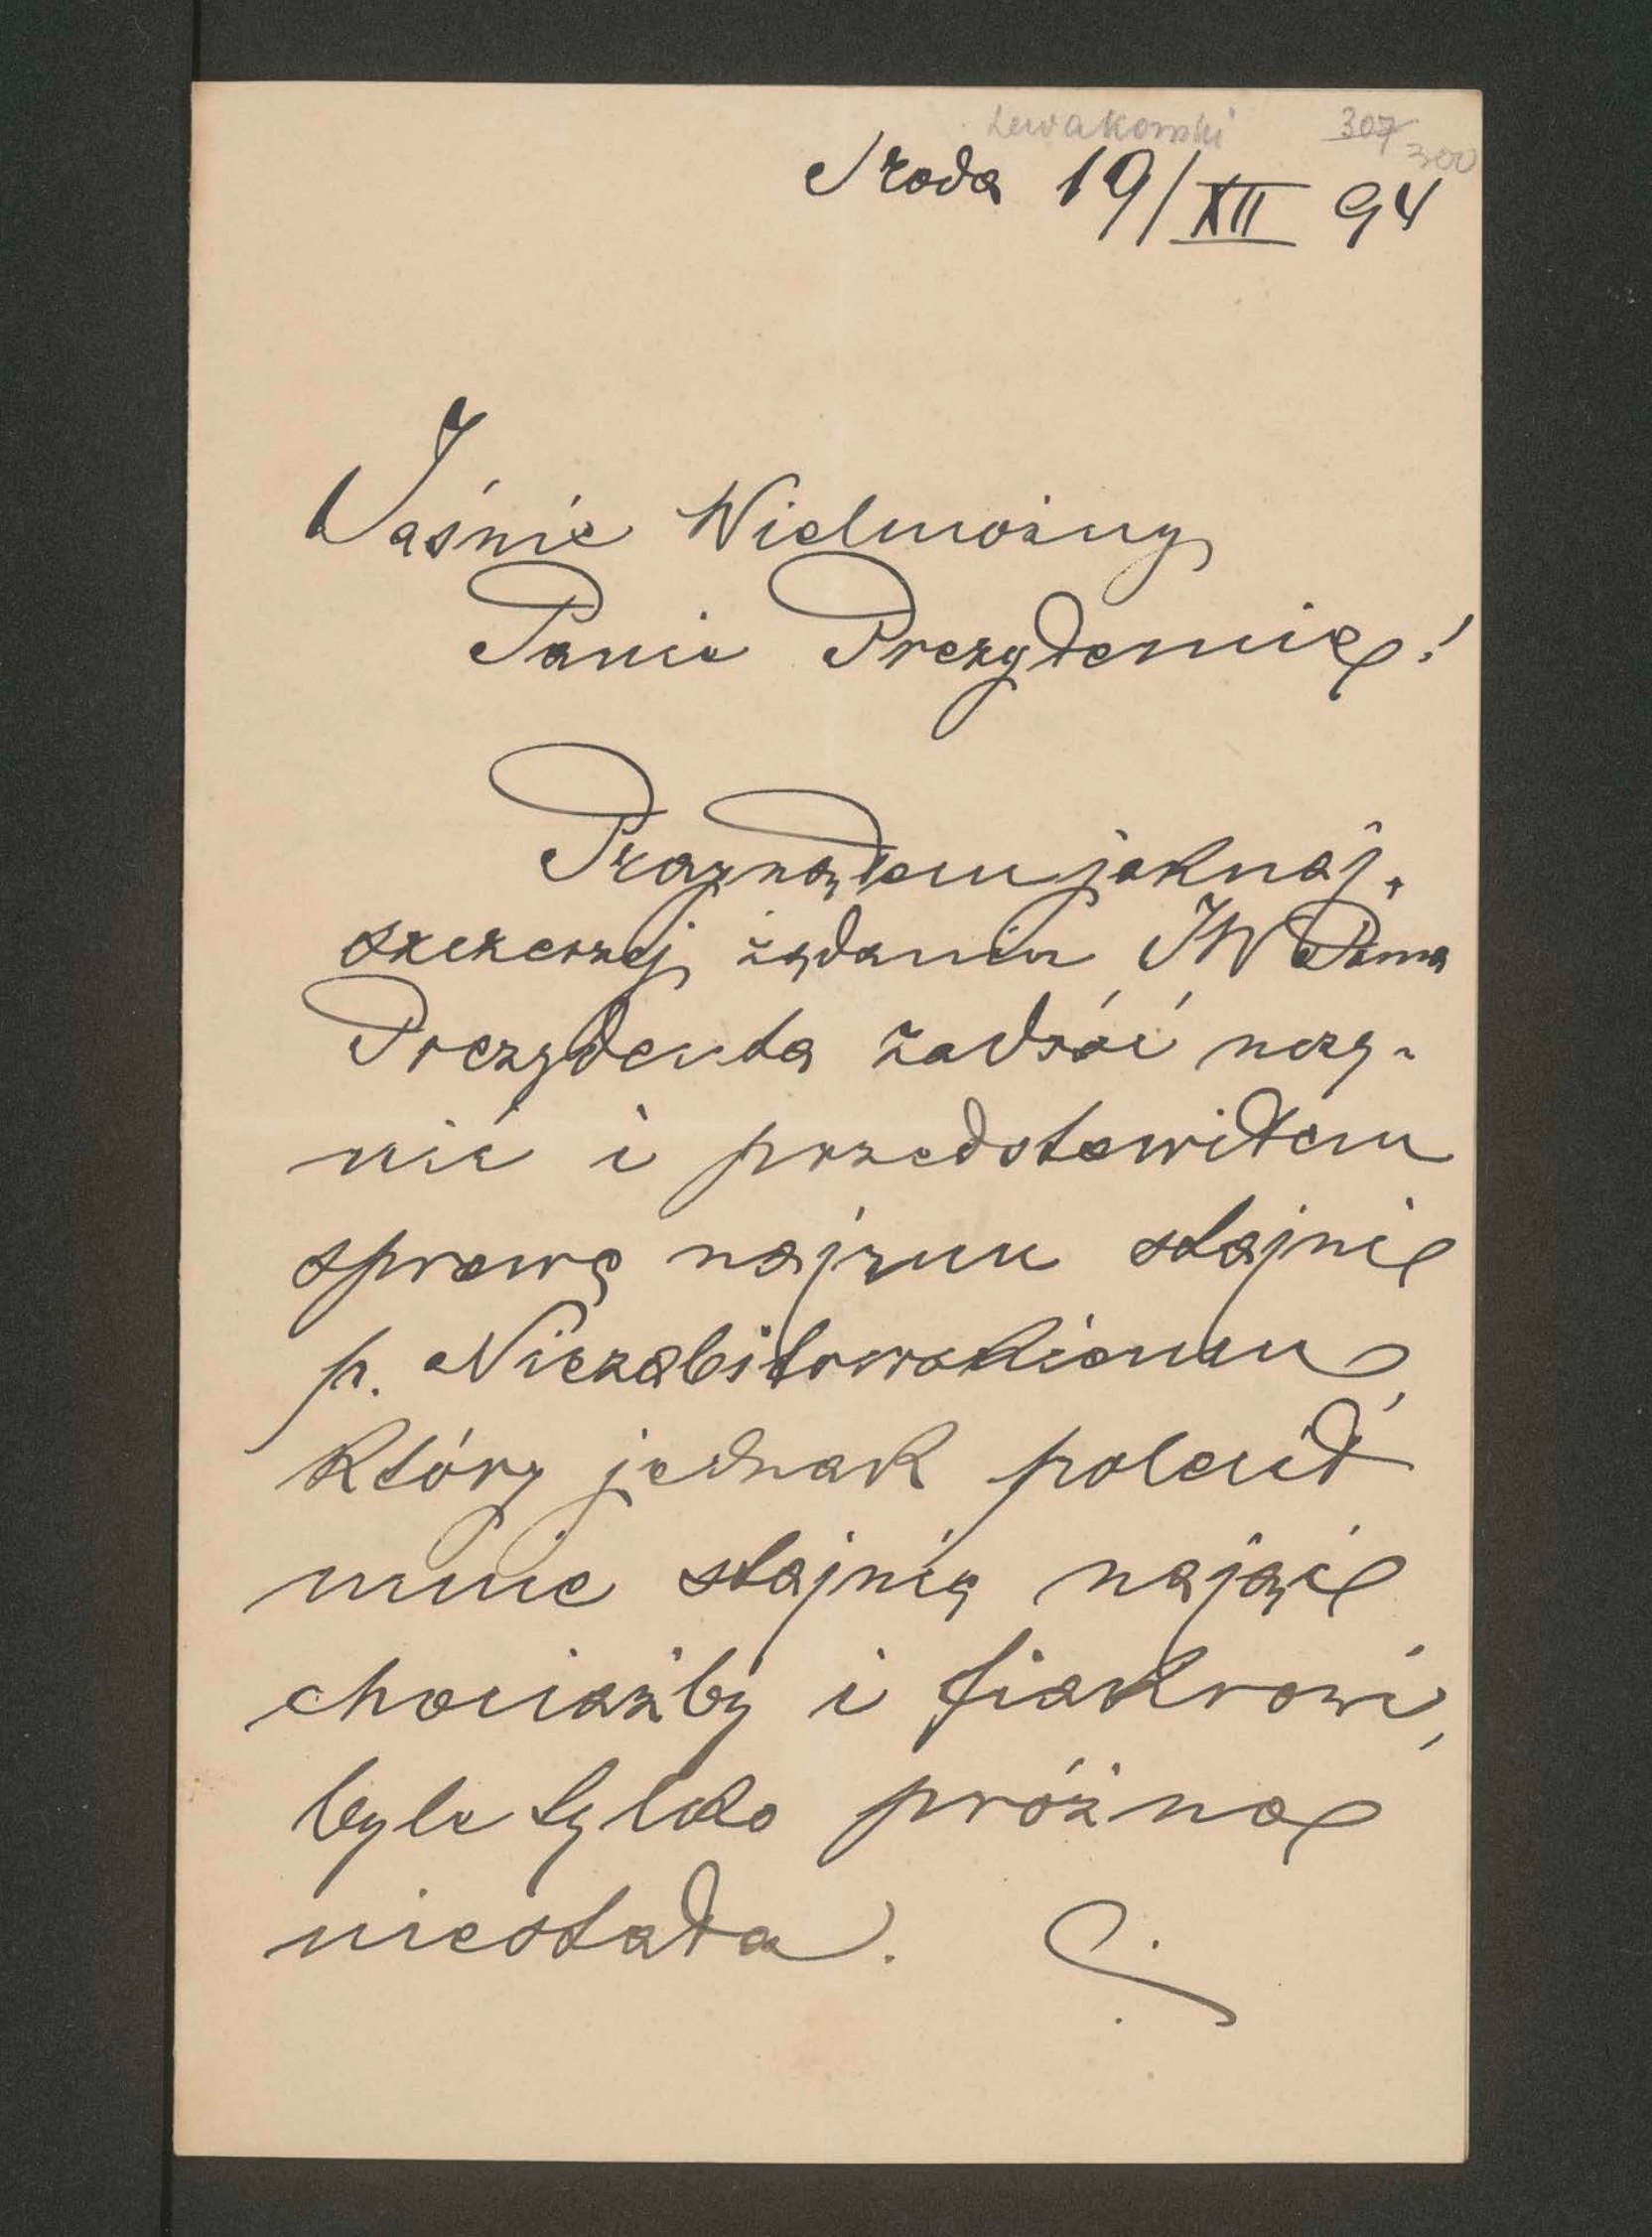 Lewakowski 307 300
Środa 19/XII 94
Jaśnie Wielmożny
Panie Prezydencie!
Pragnąłem jaknaj-
szczerzej żądaniu JW Pana
Prezydenta zadość uczy-
nić i przedstawiłem
sprawę najmu stajni
p. Niezabitowskiemu,
który jednak polecił
mnie stajnię nająć
chociażby i fiakrowi,
byle tylko próżno
niestała.